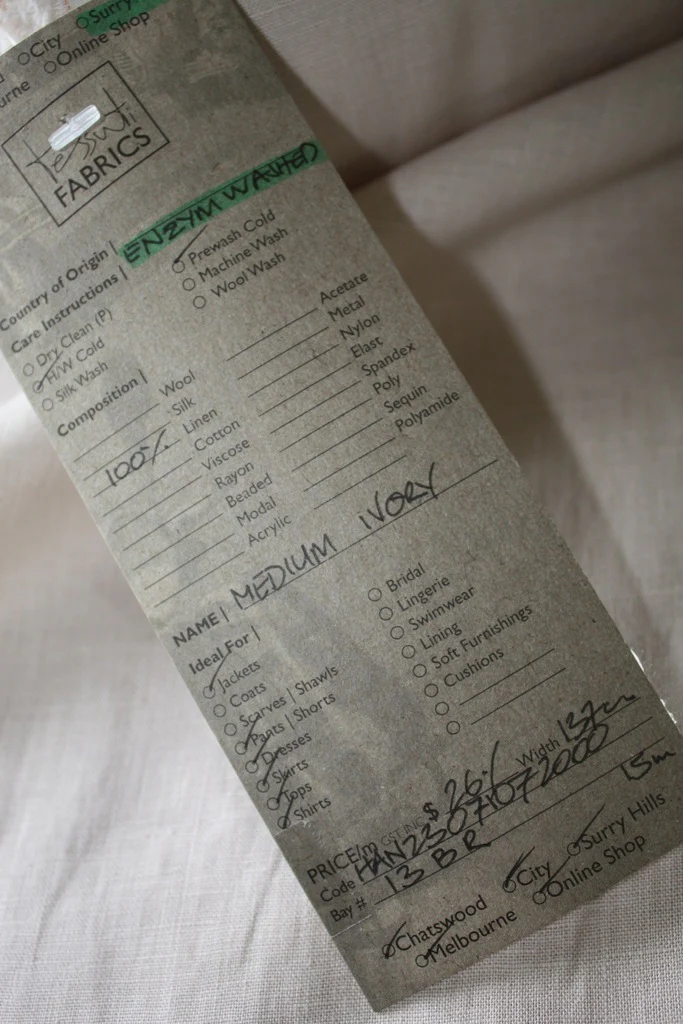 City
Surry
urne
Online Shop
tessuti
FABRICS
Country of Origin |
ENZYM WASHED
Care Instructions |
Dry Clean (P)
H/W Cold
Silk Wash
Prewash Cold
Machine Wash
Wool Wash
Composition |
Wool
Silk
100% Linen
Cotton
Viscose
Rayon
Beaded
Modal
Acrylic
Acetate
Metal
Nylon
Elast
Spandex
Poly
Sequin
Polyamide
NAME | MEDIUM IVORY
Ideal For |
Jackets
Coats
Scarves | Shawls
Pants | Shorts
Dresses
Skirts
Tops
Shirts
Bridal
Lingerie
Swimwear
Lining
Soft Furnishings
Cushions
PRICE/m GST INC $ 26 Width 137cm
Code HAN23071072000
Bay # 13 BR 15m
Chatswood City Surry Hills
Melbourne Online Shop